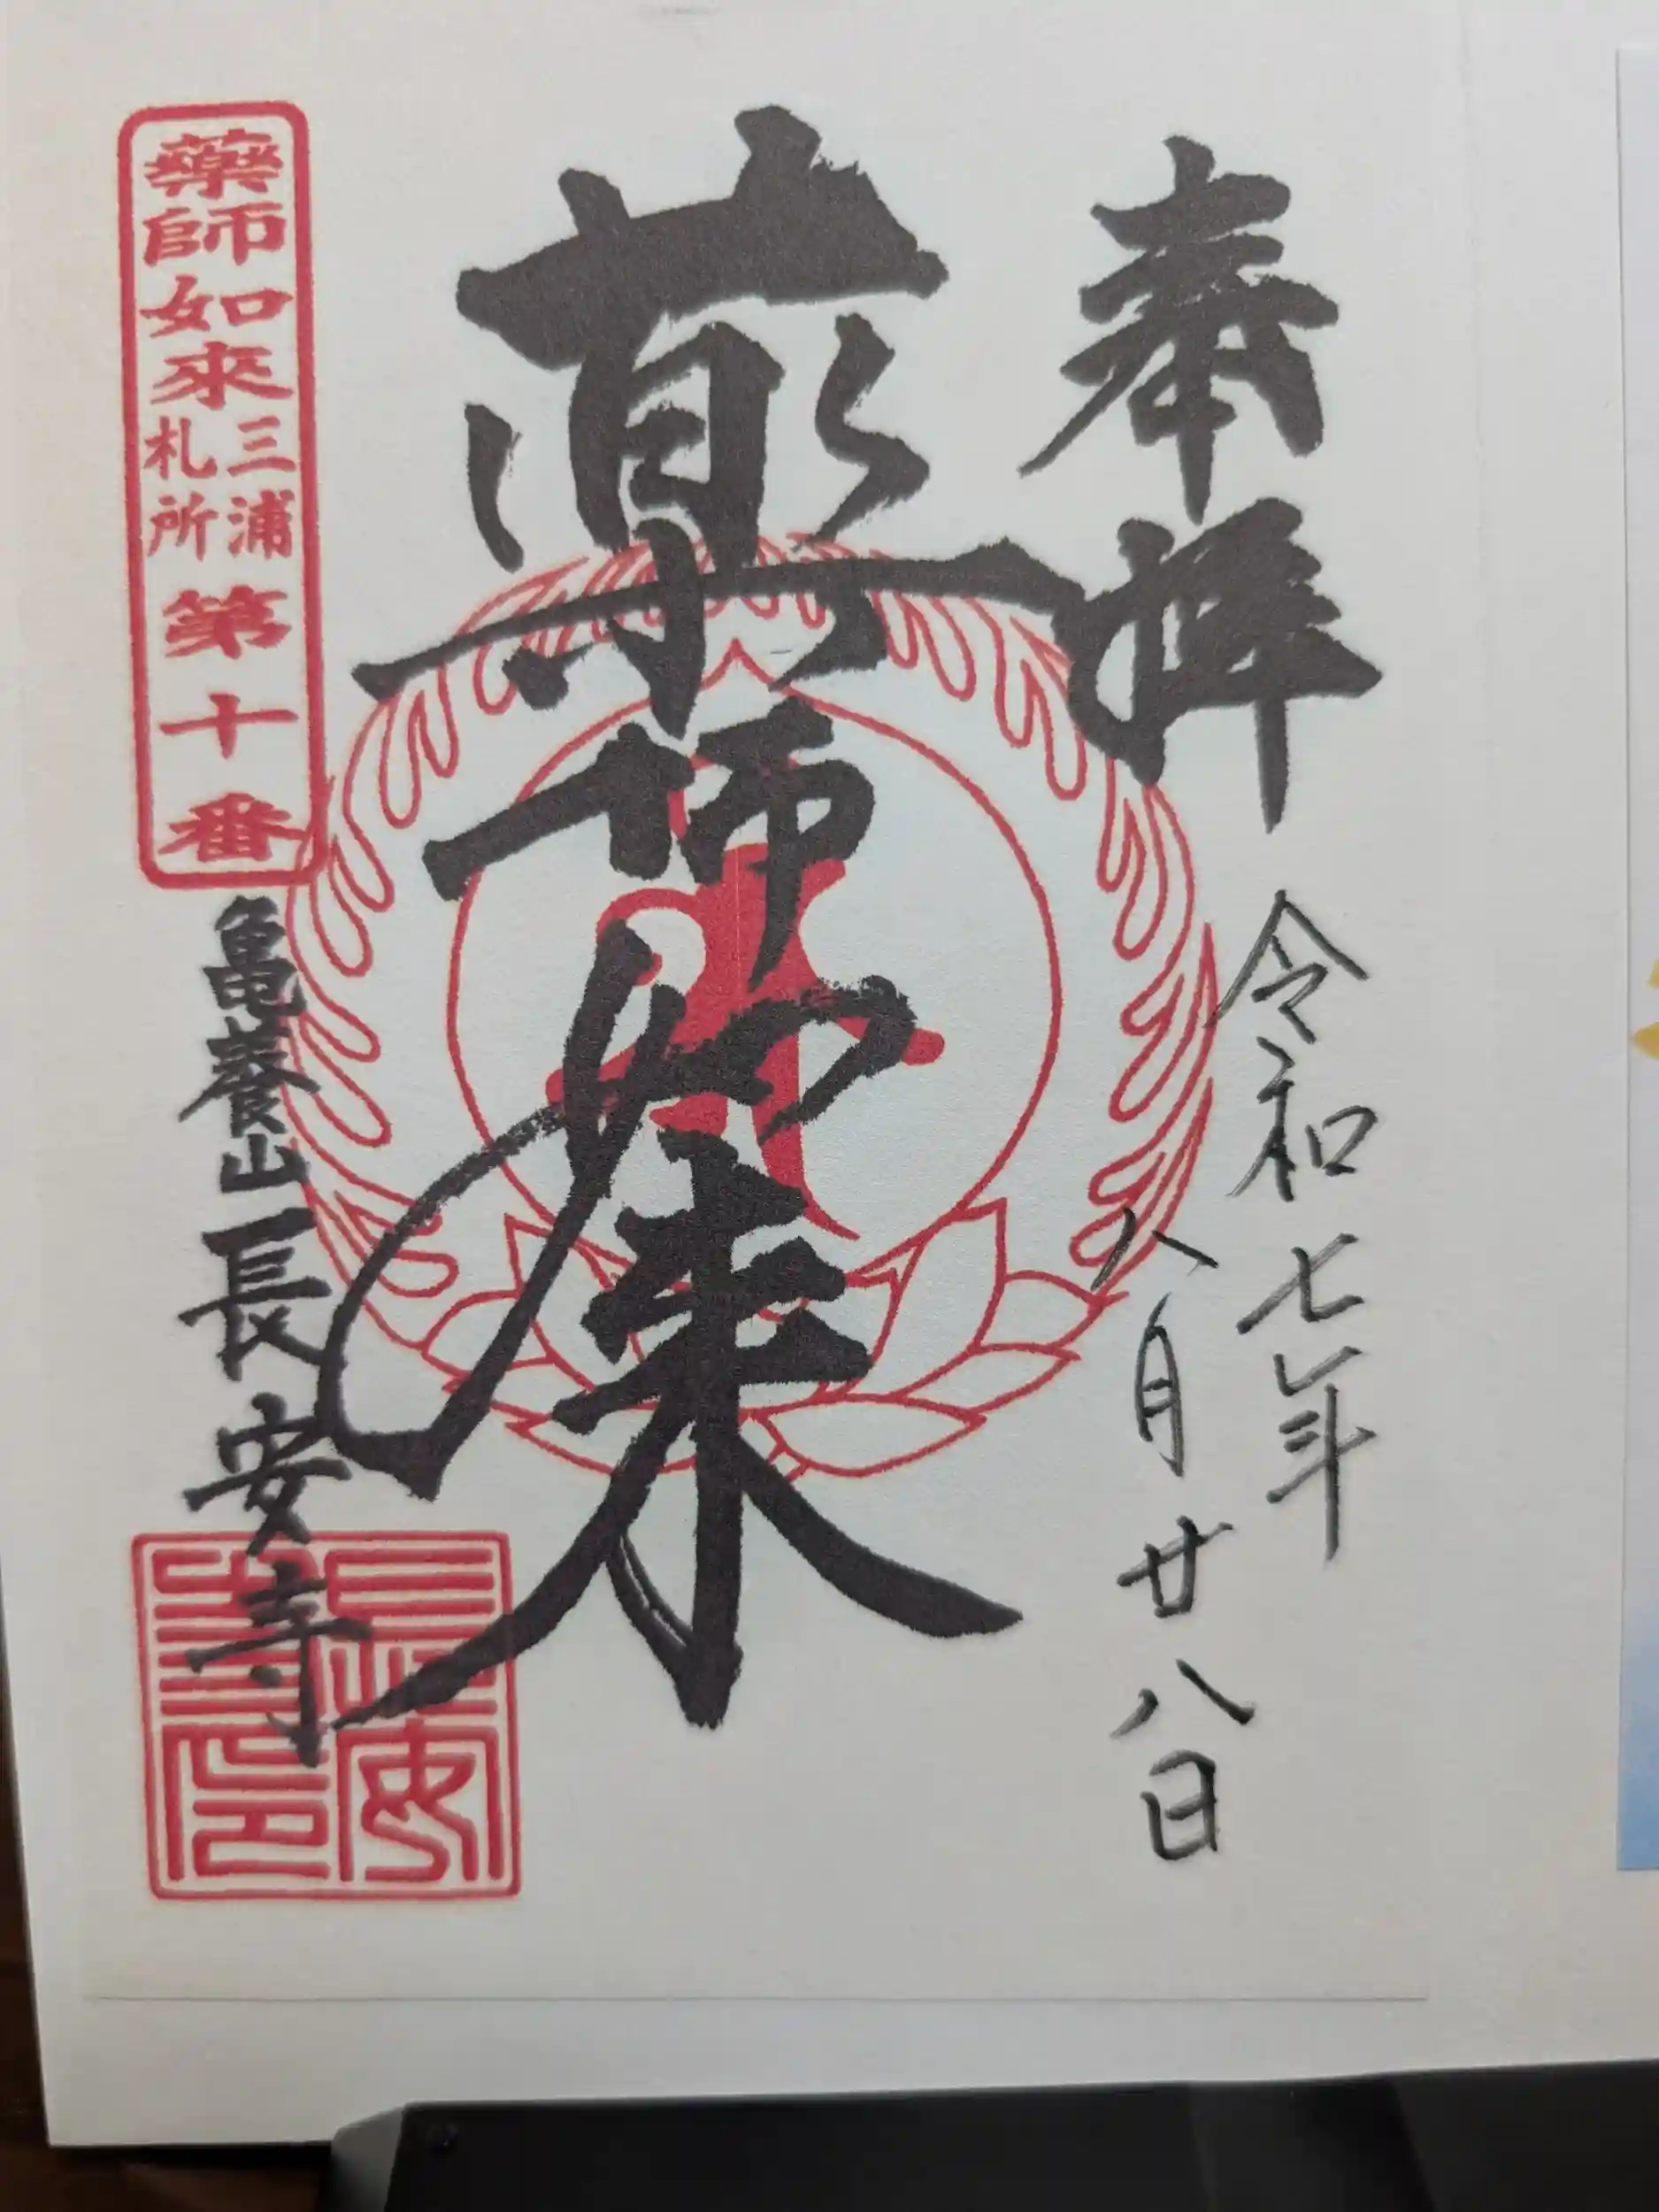 奉拝
令和七年
八月廿八日
薬師如来
藥師如來
三浦
札所
第十番
亀養山長安寺
長安
寺印